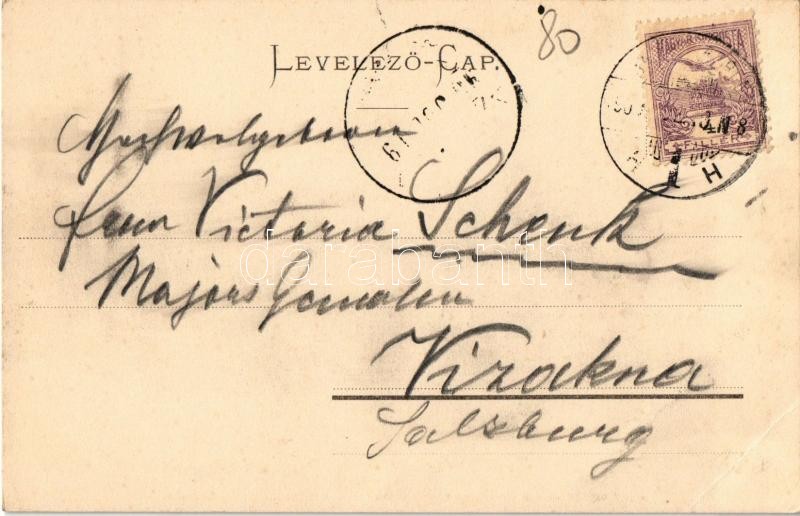 80
LEVELEZŐ-LAP.
MAGYAR KIR. POSTA
Hochwolgeboren
Frau Victoria Schenk
Majors Gemalin
Vizakna
Salzburg
darabanth